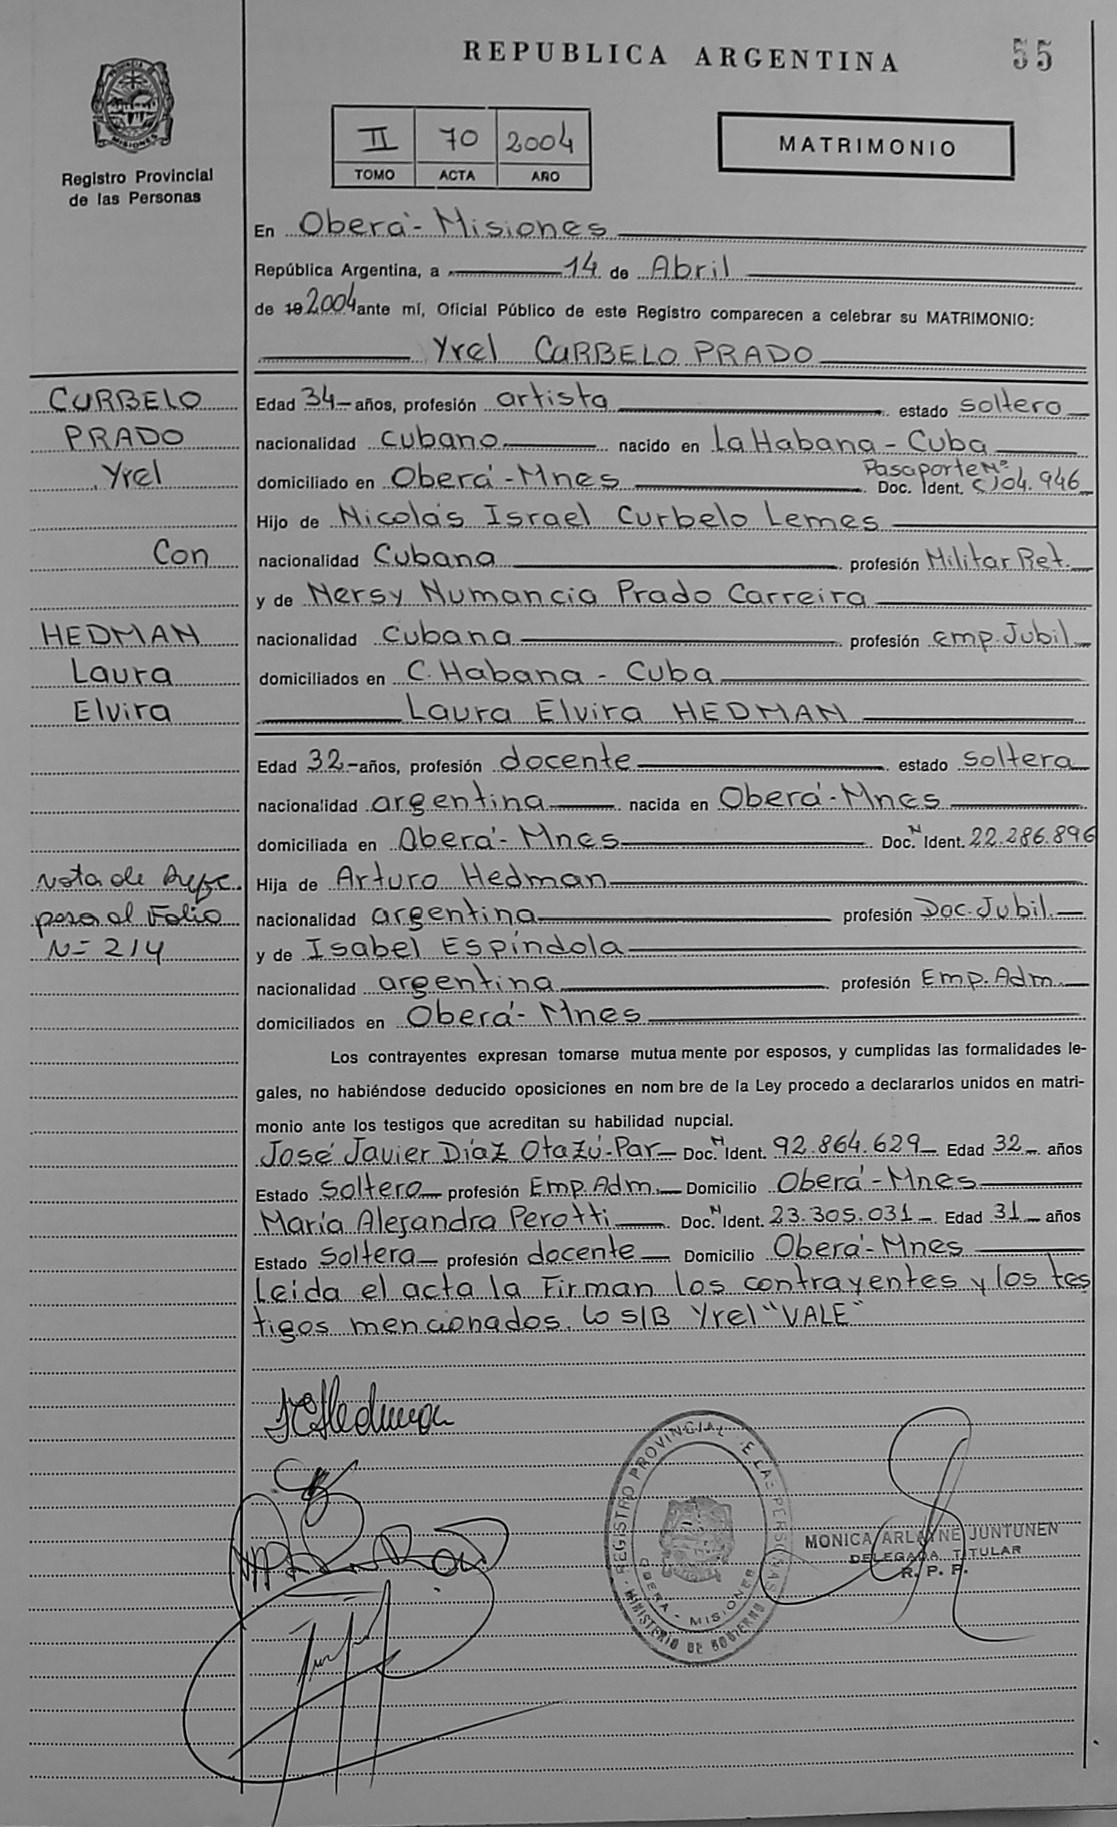 REPUBLICA ARGENTINA
55
PROVINCIA DE MISIONES
Registro Provincial
de las Personas
II 70 2004
TOMO ACTA AÑO
MATRIMONIO
En Oberá - Misiones
República Argentina, a 14 de Abril
de 19 2004 ante mí, Oficial Público de este Registro comparecen a celebrar su MATRIMONIO:
Yrel CURBELO PRADO
CURBELO
PRADO
Yrel
Con
HEDMAN
Laura
Elvira
Edad 34 años, profesión artista estado soltero
nacionalidad cubano nacido en La Habana - Cuba
domiciliado en Oberá - Mnes Pasaporte Nº Doc. Ident. C/04.946
Hijo de Nicolás Israel Curbelo Lemes
nacionalidad Cubana profesión Militar Ret.
y de Nersy Numancia Prado Carreira
nacionalidad cubana profesión emp. Jubil.
domiciliados en C. Habana - Cuba
Laura Elvira HEDMAN
Edad 32 años, profesión docente estado soltera
nacionalidad argentina nacida en Oberá - Mnes
domiciliada en Oberá - Mnes Doc. N Ident. 22.286.896
Nota de
pasa al Folio
Nº 214
Hija de Arturo Hedman
nacionalidad argentina profesión Doc. Jubil.
y de Isabel Espíndola
nacionalidad argentina profesión Emp. Adm.
domiciliados en Oberá - Mnes
Los contrayentes expresan tomarse mutua mente por esposos, y cumplidas las formalidades le-
gales, no habiéndose deducido oposiciones en nom bre de la Ley procedo a declararlos unidos en matri-
monio ante los testigos que acreditan su habilidad nupcial.
José Javier Díaz Otazú - Par Doc. N Ident. 92.864.629 Edad 32 años
Estado Soltero profesión Emp. Adm. Domicilio Oberá - Mnes
María Alejandra Perotti Doc. N Ident. 23.305.031 Edad 31 años
Estado Soltera profesión docente Domicilio Oberá - Mnes
Leida el acta la Firman los contrayentes y los tes
tigos mencionados. Lo S/B Yrel "VALE"
LEHedman
REGISTRO PROVINCIAL DE LAS PERSONAS
OBERA - MISIONES
MINISTERIO DE GOBIERNO
MONICA ARLAYNE JUNTUNEN
DELEGADA TITULAR
R. P. P.